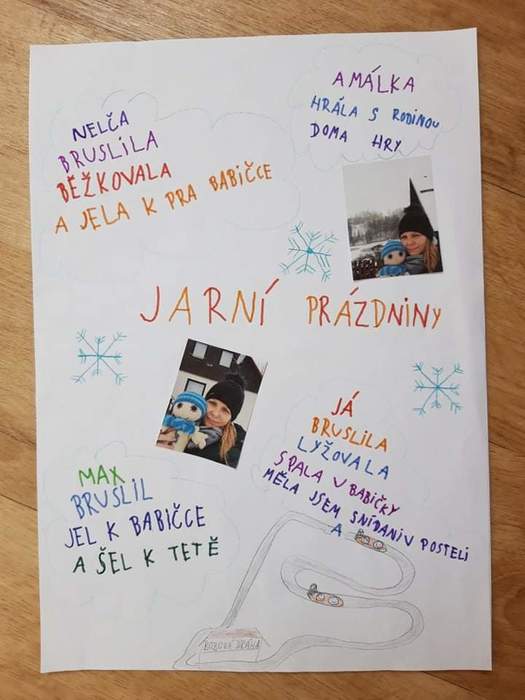 NELČA
BRUSLILA
BĚŽKOVALA
A JELA K PRA BABIČCE
AMÁLKA
HRÁLA S RODINOU
DOMA HRY
JARNÍ PRÁZDNINY
MAX
BRUSLIL
JEL K BABIČCE
A ŠEL K TETĚ
JÁ
BRUSLILA
LYŽOVALA
SPALA U BABIČKY
MĚLA JSEM SNÍDANIV POSTELI
A
BOBOVÁ DRÁHA